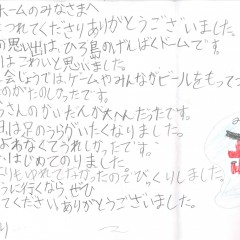 ホームのみなさまへ
つれてくださりありがとうございました。
の思い出は、ひろ島のげんばくドームです。
はこわいと思いました。
会じょうでは、ゲームやみんながビールをもって
のがたのしかったです。
さんのかいだんが大へんだったです。
は足のうらがいたくなりました。
よわなくてうれしかったです。
はじめてのりました。
りもゆれてなかったのでびっくりしました。
うに行くなら、ぜひ
てくださいありがとうございました。
り